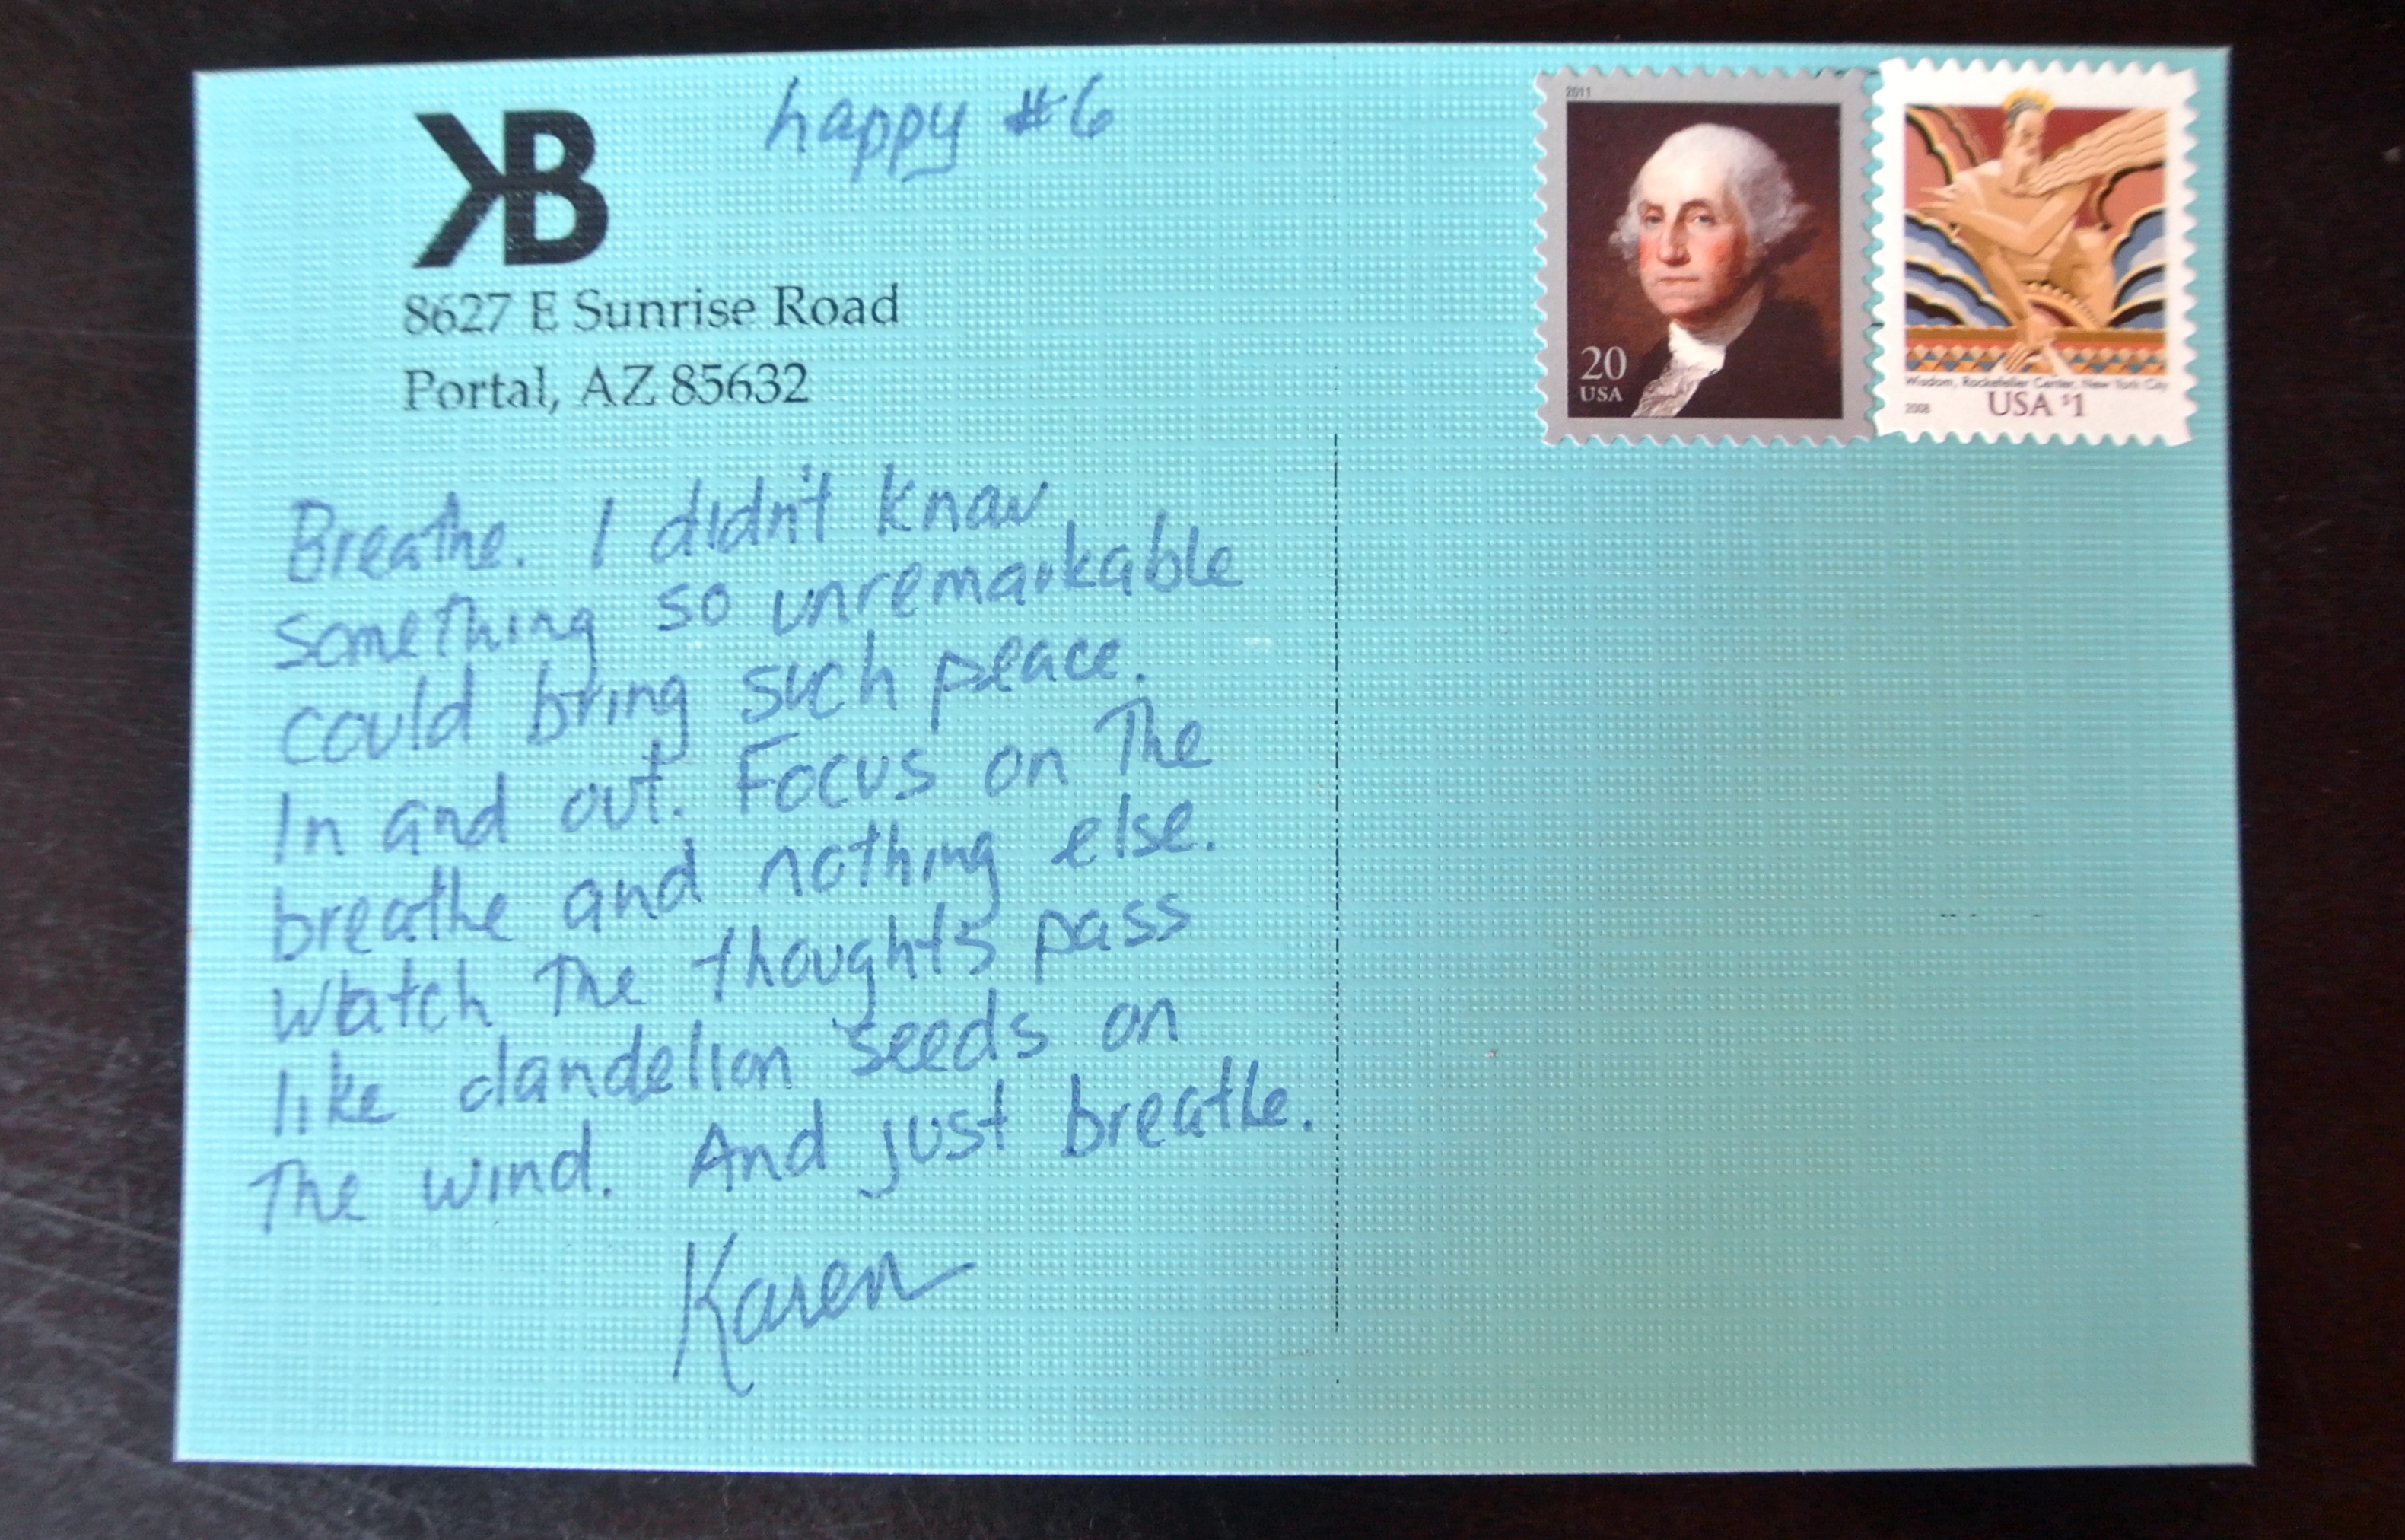 happy #6
KB
8627 E Sunrise Road
Portal, AZ 85632
Breathe. I didn't know
something so unremarkable
could bring such peace.
In and out. Focus on The
breathe and nothing else.
Watch The thoughts pass
like dandelion seeds on
The wind. And just breathe.
Karen
2011
20
USA
Wisdom, Rockefeller Center, New York City
2008
USA $1